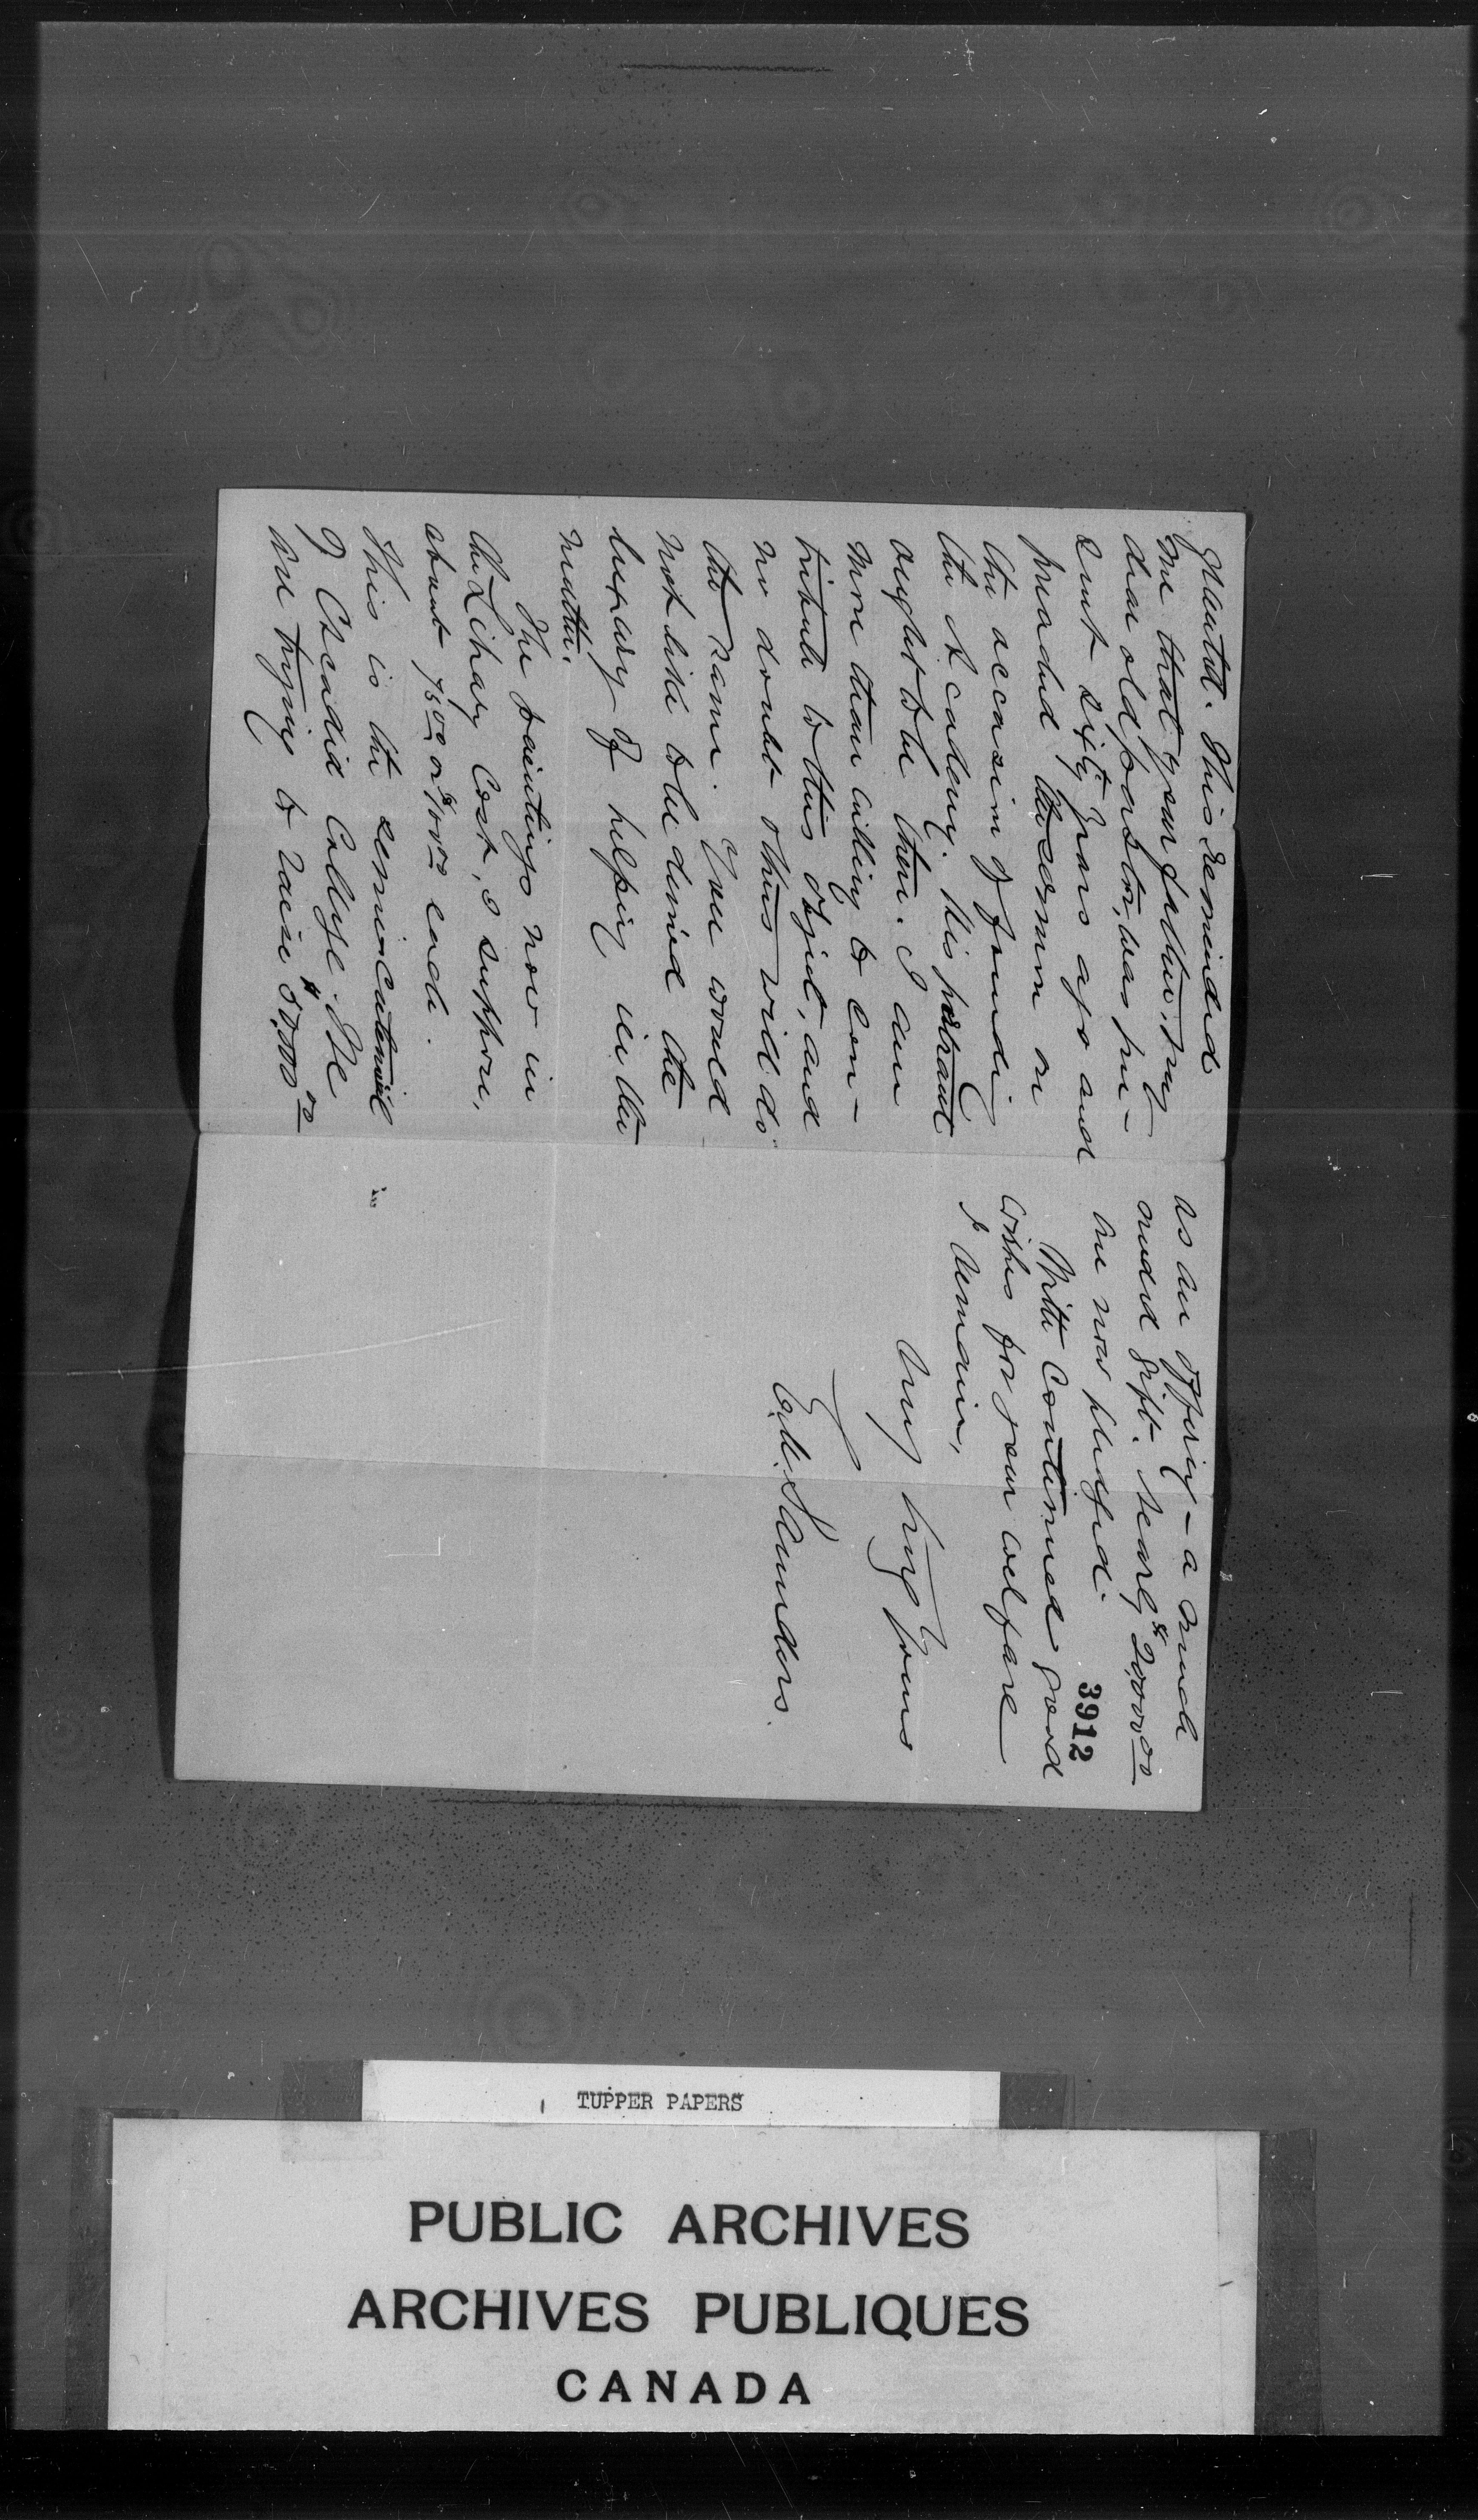 granted. This reminded
me that your father, my
dear old pastor, was pre-
sent sixty years ago and
preached the sermon on
the occasion of founding
the Academy. His portrait
ought to be there. I am
more than willing to con-
tribute to this object, and
no doubt others will do
the same. You would
not like to be denied the
luxury of helping in the
matter.
The paintings now in
the Library cost, I suppose,
about 75.00 or $100.00 each.
This is the semi-centennial
of Acadia College. We
are trying to raise $50,000.00
as an offering - a much
needed gift. Nearly $20,000.00
are now pledged.
3912
With continued good
wishes for your welfare
I remain,
Very truly yours
E. M. Saunders.
TUPPER PAPERS
PUBLIC ARCHIVES
ARCHIVES PUBLIQUES
CANADA